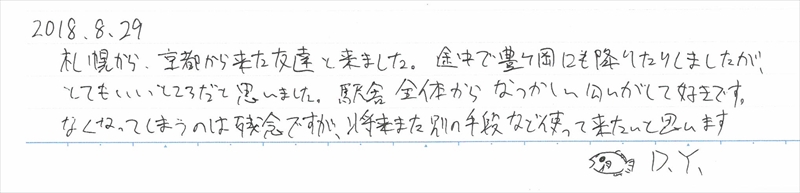 2018.8.29
札幌から、京都から来た友達と来ました。途中で豊ヶ岡にも降りたりしましたが、
とてもいいところだと思いました。駅舎全体からなつかしい匂いがして好きです。
なくなってしまうのは残念ですが、将来また別の手段など使って来たいと思います
D.Y.